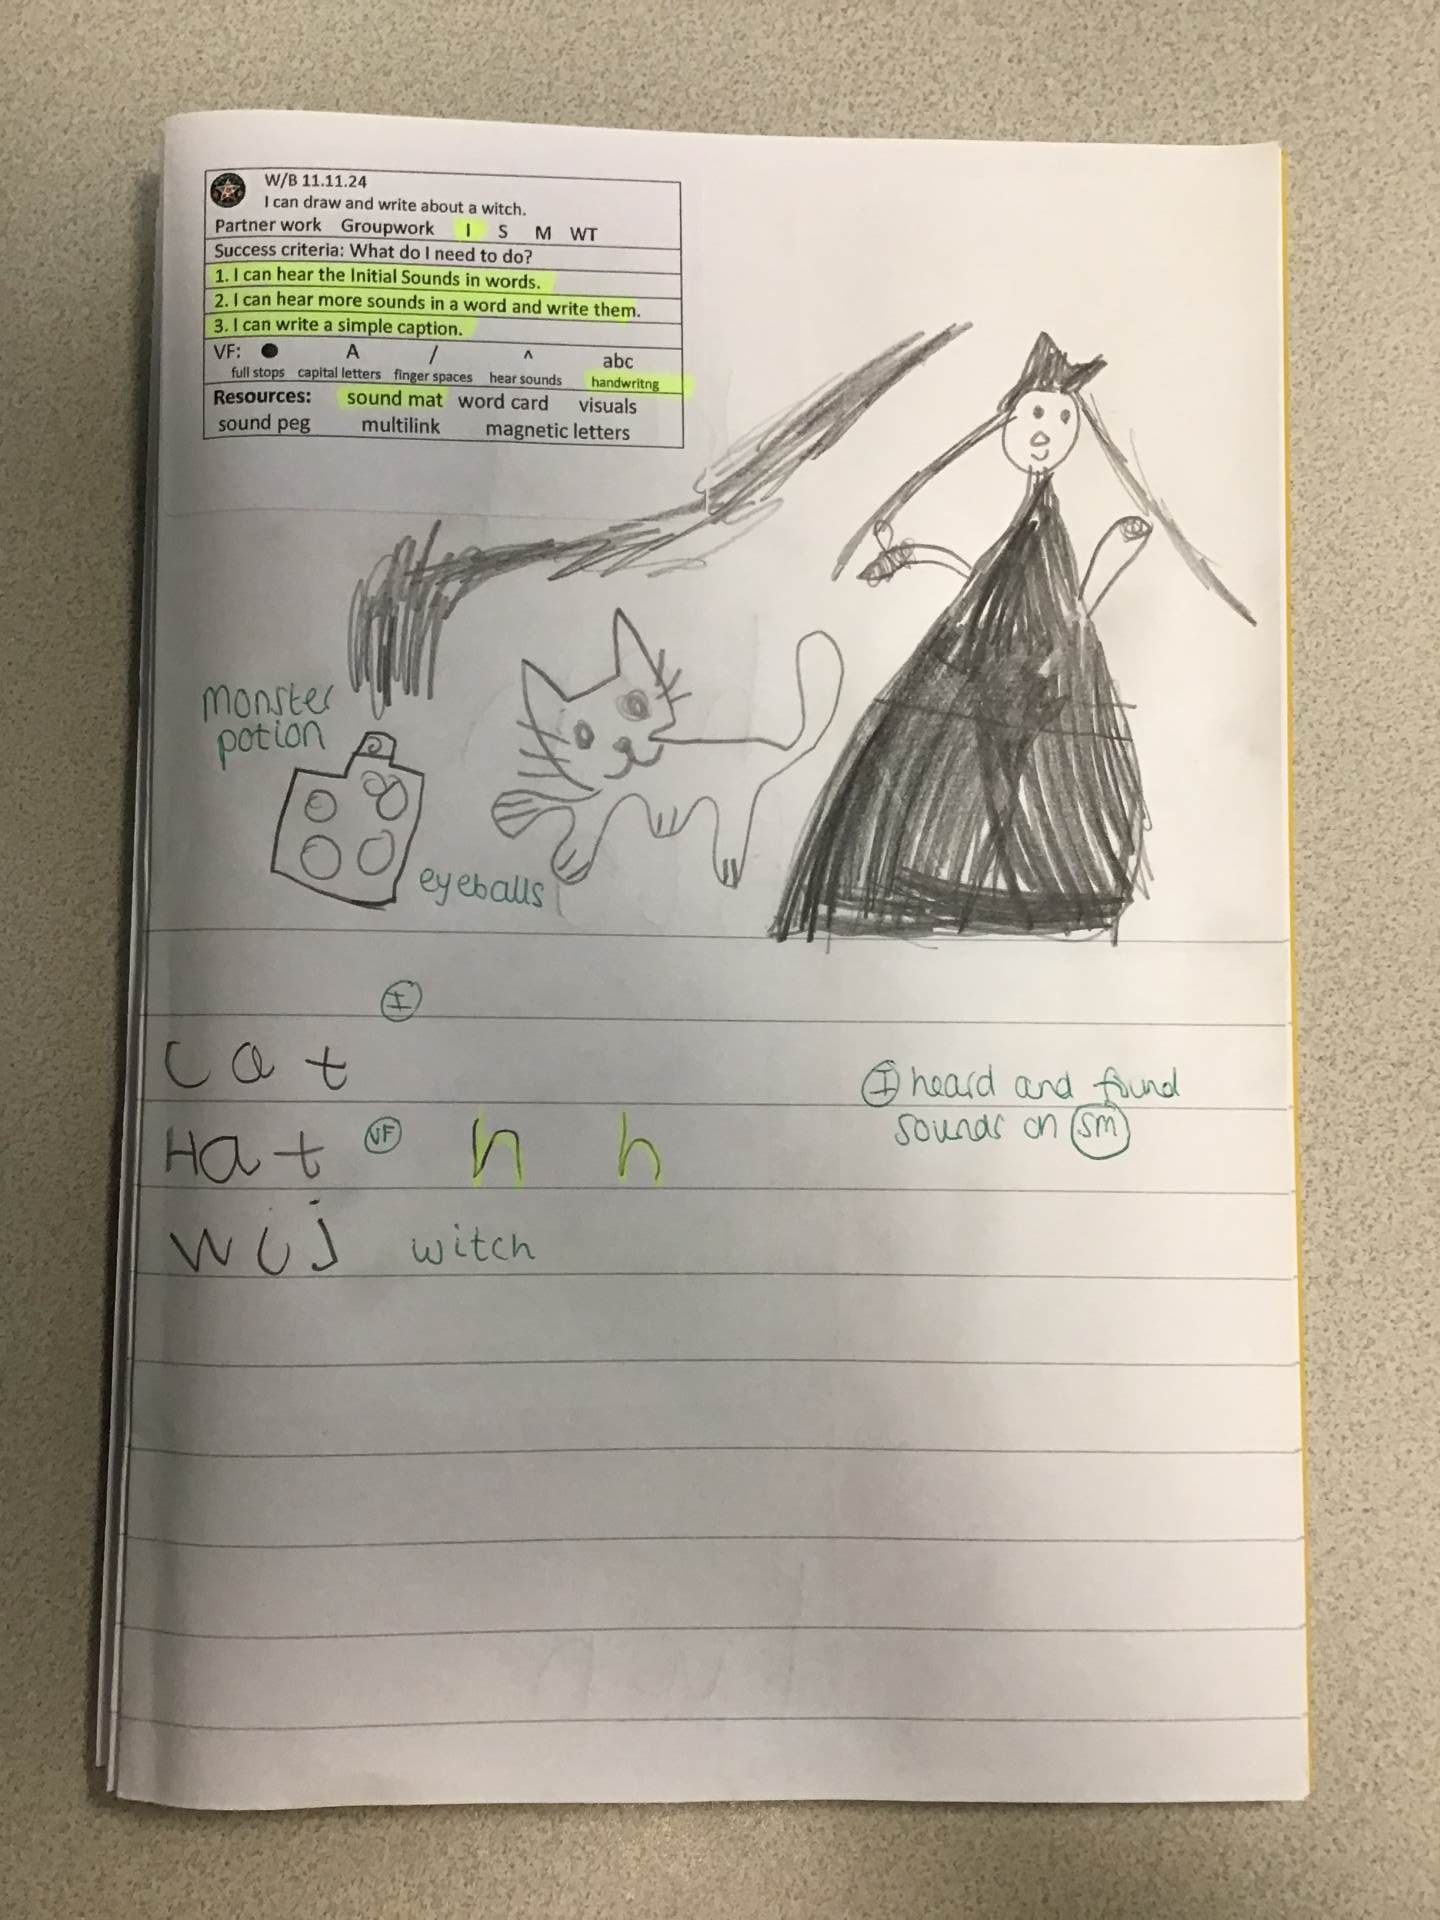 W/B 11.11.24
I can draw and write about a witch.
Partner work Groupwork I S M WT
Success criteria: What do I need to do?
1. I can hear the Initial Sounds in words.
2. I can hear more sounds in a word and write them.
3. I can write a simple caption.
VF: ● A / ^ abc
full stops capital letters finger spaces hear sounds handwritng
Resources: sound mat word card visuals
sound peg multilink magnetic letters
monster
potion
eyeballs
I
cat
Hat VF h h
wij witch
I heard and found
sounds on SM